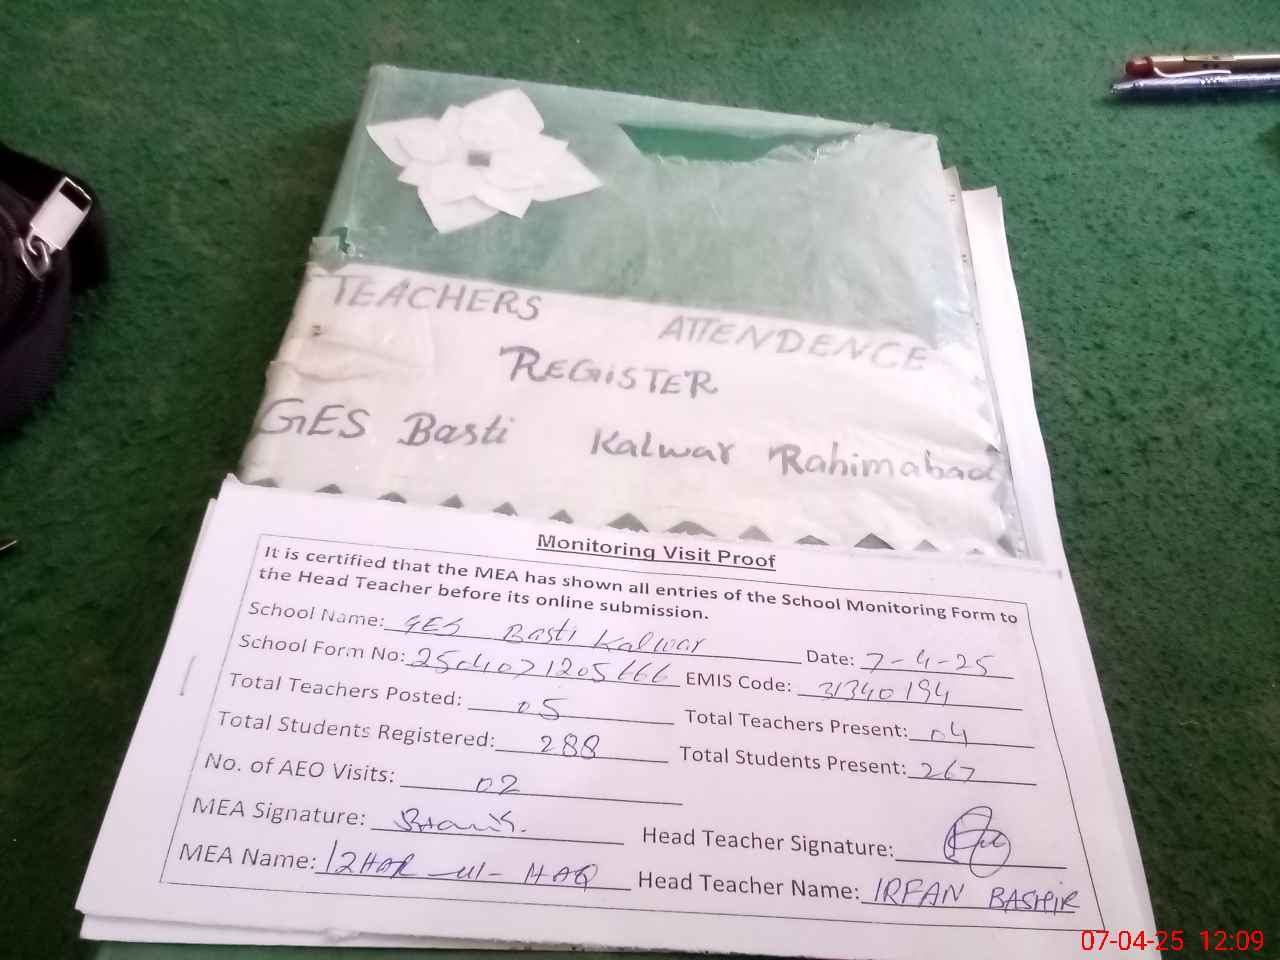 TEACHERS ATTENDENCE
REGISTER
GES Basti Kalwar Rahimabad
Monitoring Visit Proof
It is certified that the MEA has shown all entries of the School Monitoring Form to
the Head Teacher before its online submission.
School Name: GES Basti Kalwar Date: 7-4-25
School Form No: 2504071205666 EMIS Code: 31340194
Total Teachers Posted: 05 Total Teachers Present: 04
Total Students Registered: 288 Total Students Present: 267
No. of AEO Visits: 02
MEA Signature: Head Teacher Signature:
MEA Name: IZHAR ul- HAQ Head Teacher Name: IRFAN BASHIR
07-04-25 12:09